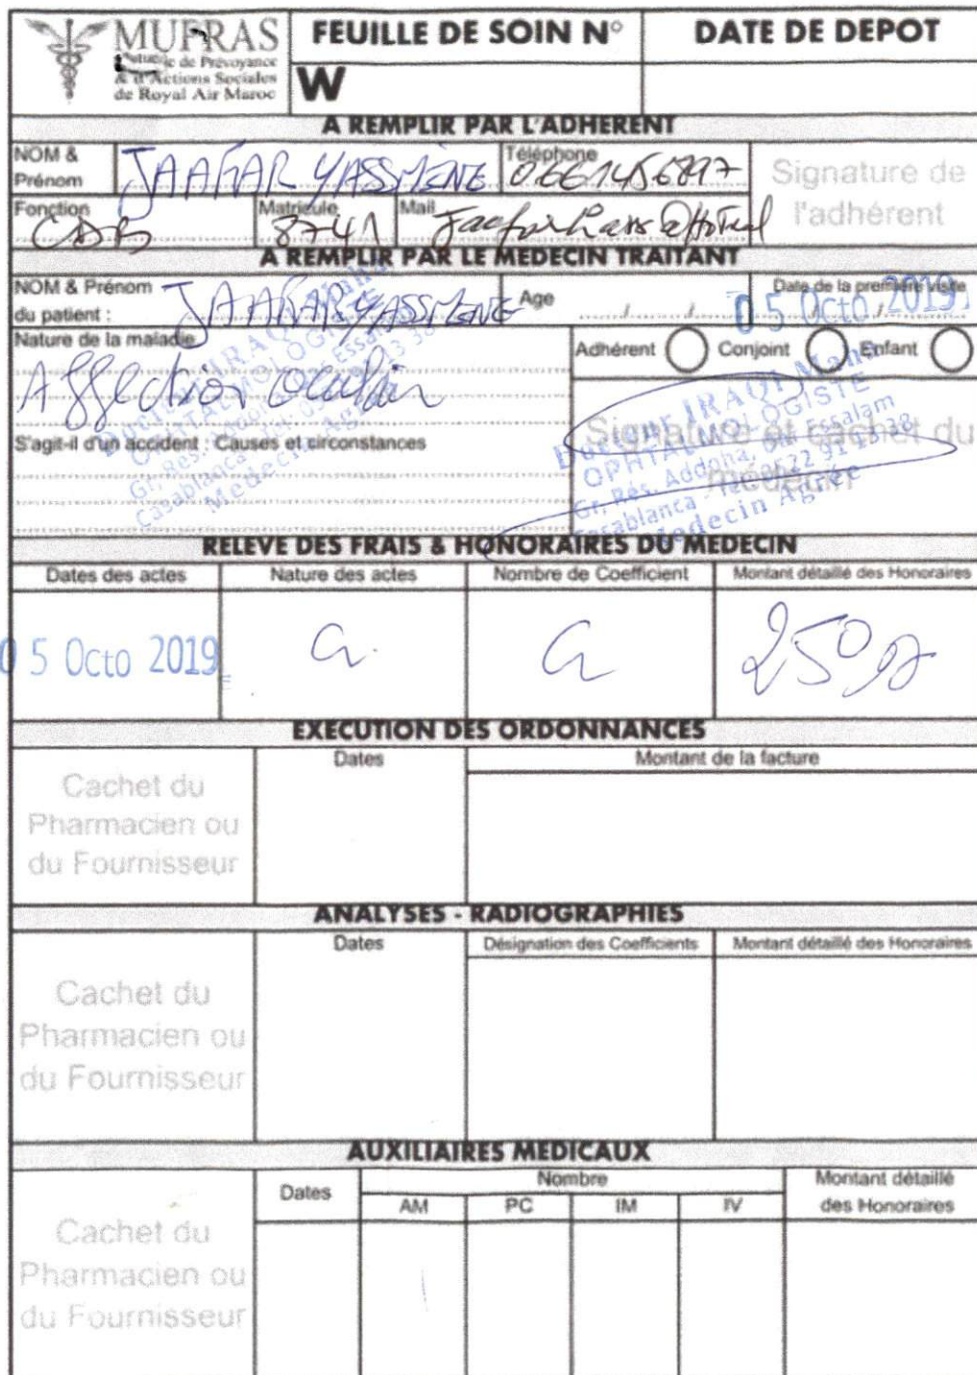 MUPRAS
Mutuelle de Prévoyance
& d'Actions Sociales
de Royal Air Maroc
FEUILLE DE SOIN N° DATE DE DEPOT
W
A REMPLIR PAR L'ADHERENT
NOM & Prénom JAAFAR YASSMENE Téléphone
Signature de l'adhérent
Fonction CDB Matricule 8741 Mail
A REMPLIR PAR LE MEDECIN TRAITANT
NOM & Prénom du patient : JAAFAR YASSMENE Age / / Date de la première visite 05 Octo 2019
Nature de la maladie Adhérent Conjoint Enfant
Affection oculaire
S'agit-il d'un accident : Causes et circonstances
Signature et cachet du médecin
Docteur IRAQI Maha
OPHTALMOLOGISTE
Gr. Rés. Addoha, Essalam
Casablanca
Medecin Agréé
RELEVE DES FRAIS & HONORAIRES DU MEDECIN
Dates des actes Nature des actes Nombre de Coefficient Montant détaillé des Honoraires
05 Octo 2019 250
EXECUTION DES ORDONNANCES
Cachet du Pharmacien ou du Fournisseur Dates Montant de la facture
ANALYSES - RADIOGRAPHIES
Cachet du Pharmacien ou du Fournisseur Dates Désignation des Coefficients Montant détaillé des Honoraires
AUXILIAIRES MEDICAUX
Cachet du Pharmacien ou du Fournisseur Dates Nombre Montant détaillé des Honoraires
AM PC IM IV